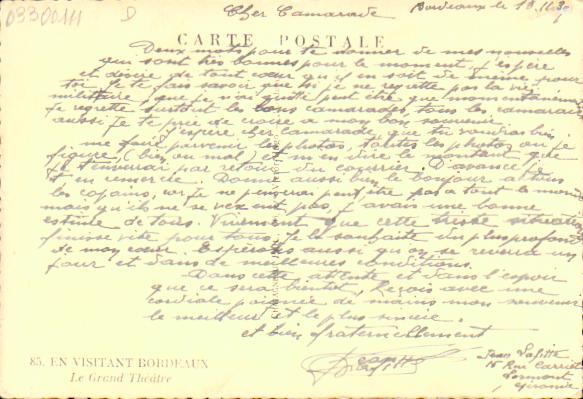 03300111 D
Cher Camarade Bordeaux le 18.11.39
CARTE POSTALE
Deux mots pour te donner de mes nouvelles
qui sont très bonnes pour le moment, j'espère
et désire de tout cœur qu'il en soit de même pour
toi. Je te fais savoir que si je ne regrette pas la vie
militaire, que je n'ai quitté peut être que momentanément
je regrette surtout les bons camarades, tous les camarades
aussi je te prie de croire a mon bon souvenir.
J'espère cher camarade, que tu voudras bien
me faire parvenir les photos, toutes les photos ou je
figure, (bien ou mal) et m'en dire le montant que
je t'enverrai par retour du courrier. D'avance je
t'en remercie. Donne aussi bien le bonjour a tous
les copains, car je ne penserai peut être pas a tout le monde
mais qu'ils ne se vexent pas, j'avais une bonne
estime de tous. Vivement que cette triste situation
finisse vite pour tous. Je le souhaite du plus profond
de mon cœur. Espérons aussi qu'on se reverra un
jour et dans de meilleures conditions.
Dans cette attente et dans l'espoir
que ce sera bientôt, Reçois avec une
cordiale poignée de mains mon souvenir
le meilleur et le plus sincère.
et bien fraternellement
85. EN VISITANT BORDEAUX
Le Grand Théâtre
Jean Lafitte
15 Rue Carriet
Lormont
Gironde